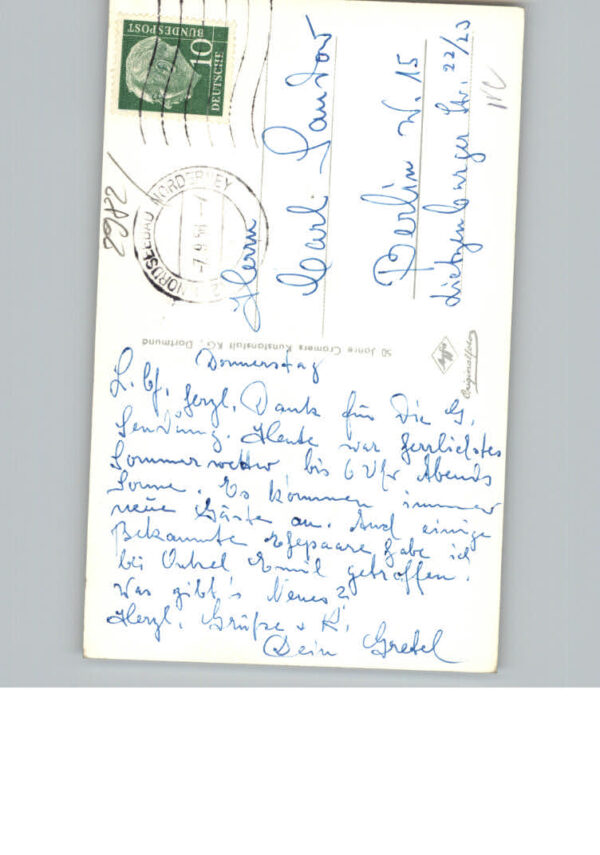 Donnerstag
L. Cf, herzl. Dank für die G.
Sendung. Heute war herrlichstes
Sommerwetter, bis 6 Uhr Abends
Sonne. Es kommen immer
neue Gäste an. Auch einige
Bekannte Ehepaare habe ich
bei Onkel Emil getroffen.
Was gibt's Neues?
Herzl. Grüße u K.
Dein Gretel
Herrn
Carl Sandow
Berlin W. 15
Lietzenburger Str. 22/23
DEUTSCHE
BUNDESPOST
10
NORDSEEBAD NORDERNEY
2982/
50 Jahre Cramers Kunstanstalt KG., Dortmund
Agfa
Originalfoto